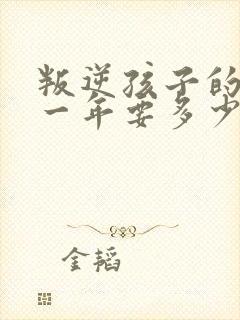 叛逆孩子的
一年要多少
金韬